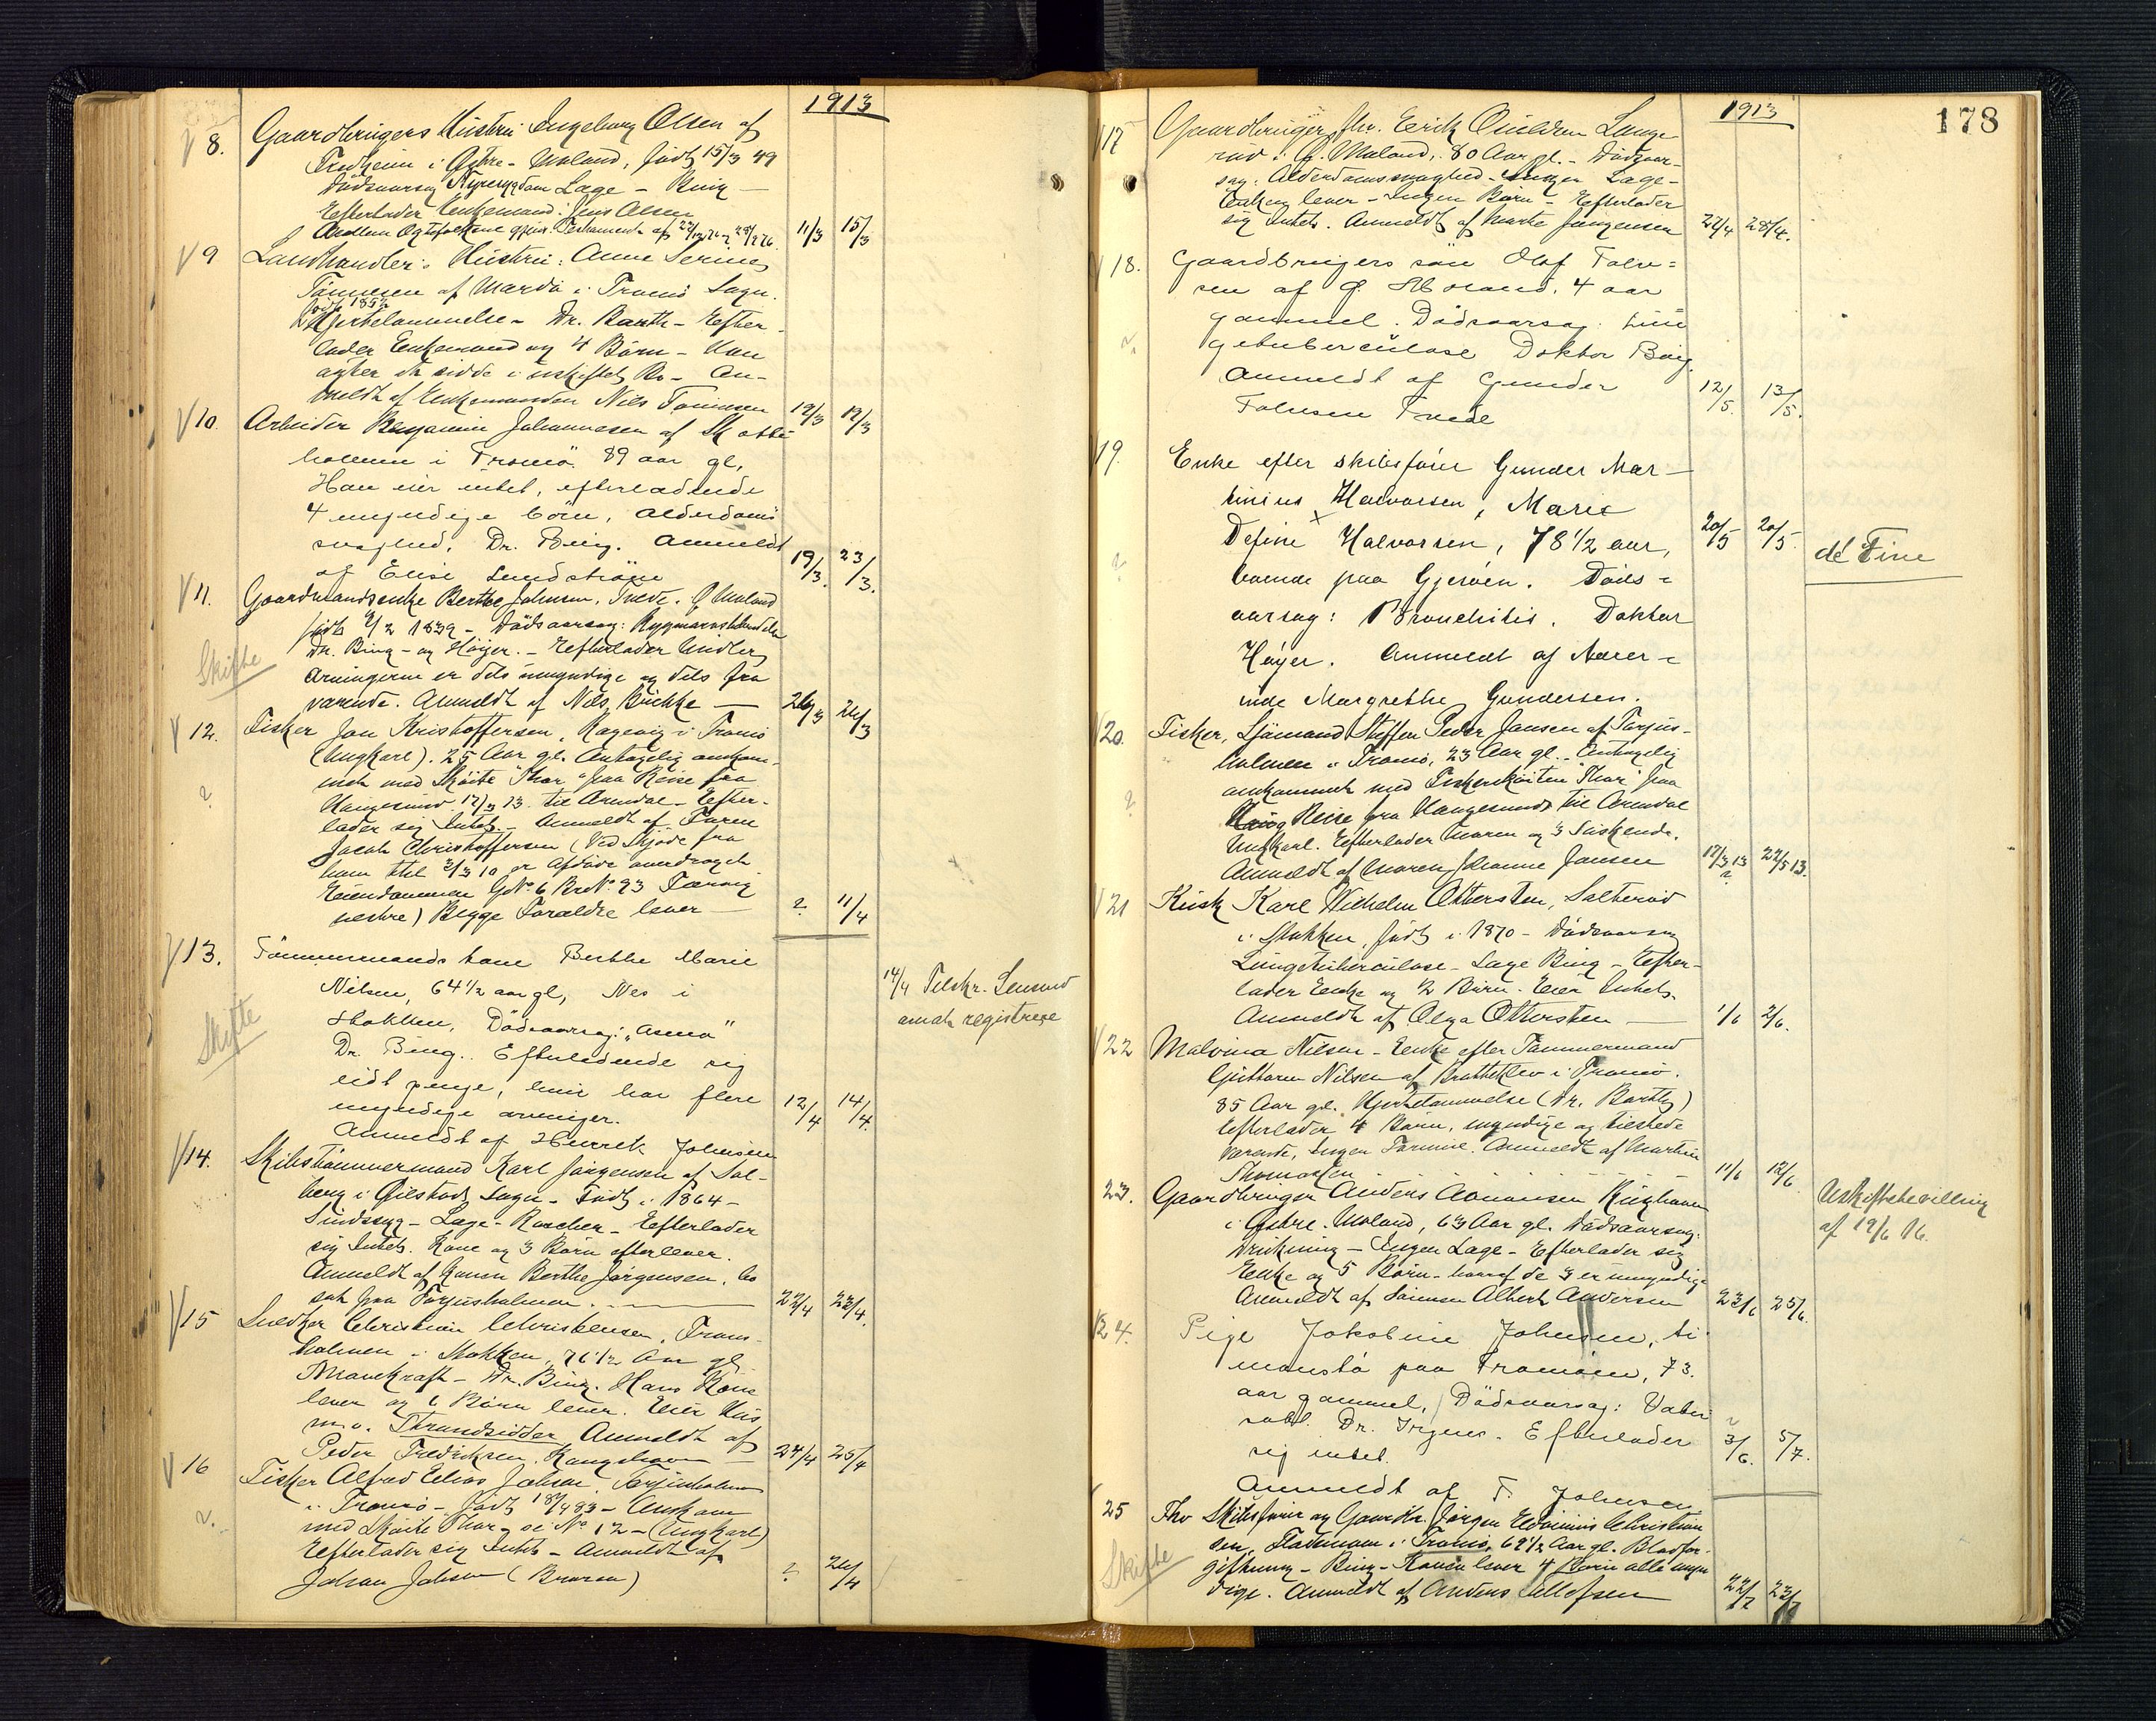 1913
8. Gaardbrugers Hustru Ingeborg Olsen af
Fredheim i Østre-Moland, født 15/3 49
Dødsaarsag Nyresygdom Læge - Bing -
Efterlader Enkemand: Jens Olsen
Mellem Ægtefolkene gjens. Testament af 11/3 15/3
9 Landhandler: Hustru: Anne Serine
Tønnesen af Mærdø i Tromø Sogn.
født 1852
Hjertelammelse - Dr. Barth - Efter-
lader Enkemand og 4 Børn - Han
agter at sidde i uskiftet Bo - An-
meldt af Enkemanden Nils Tønnesen 12/3 12/3
10. Arbeider Benjamin Johannesen af Skotte
holmen i Tromø. 89 aar gl,
Han eier intet, efterladende
4 myndige børn, Alderdoms
svaghed, Dr. Bing. Anmeldt
af Elise Lundstrøm 19/3. 23/3.
11. Gaardmandsenke Berthe Johnsen, Trede. Ø Moland
født 9/2 1839 - Dødsaarsag: Rygmarvsbetændelse
Dr. Bing - og Høyer. - Efterlader Midler,
Skifte
Arvingerne er dels umyndige og dels fra
værende. Anmeldt af Nils Buckke - 26/3 26/3
12. Fisker Jon Kristoffersen, Kagevig i Tromø
(Ungkarl). 25 Aar gl. Antagelig omkom-
met med Skøite "Thor" paa Reise fra
Haugesund 17/3 13 til Arendal - Efter-
lader sig Intet. - Anmeldt af Faren
Jacob Christoffersen (Ved Skjøde fra
ham thl 3/3 10 er Afdøde overdraget
Eiendommen GNo 6 BrNo 93 Færvig
vestre) Begge Forældre lever - ? 11/4
13. Tømmermands kone Berthe Marie
Nilsen, 64 1/2 aar gl, Nes i
Stokken, Dødsaarsag: "Asma"
Skifte
Dr. Bing. Efterladende sig
lidt penge, hun har flere
myndige arvinger. 12/4 14/4.
Anmeldt af Henrik Johnsen
14/4 Tilskr. Lensmd
anmodn registrere
14. Skibstømmermand Karl Jørgensen af Sol-
berg i Øiestad Sogn - Født i 1864 -
Sindssyg - Læge - Roscher - Efterlader
sig Intet. Kone og 3 Børn efterlever.
Anmeldt af Konen Berthe Jørgensen, bo
sat paa Torjusholmen. 22/4 22/4.
15 Snedker Christian Christensen, Troms-
holmen i Stokken, 76 1/2 Aar gl
Mavekræft - Dr. Bing. Hans Kone
lever og 6 Børn lever. Eier Hus
m.v. Strandsidder Anmeldt af
Peder Fredriksen, Kongshavn - 24/4 25/4
16 Fisker Alfred Elias Johsen, Torjusholmen
i Tromø - født 18/4 83 - Omkom
med Skøite Thor, se No 12 - (Ungkarl)
Efterlader sig Intet - Anmeldt af
Johan Johsen (Broren) ? 26/4
1913
178
17 Gaardbruger fhv. Eerik Lange
rød i Ø. Moland, 80 Aar gl. - Dødsaar-
sag: Alderdomssvaghed - Ingen Læge -
Enken lever - Ingen Børn - Efterlader
sig Intet. Anmeldt af Marte Jørgensen 27/4 28/4.
18. Gaardbrugers søn Olaf Falve=
sen af Ø. Moland. 4 aar
gammel. Dødsaarsag: Lun
getuberculose Doktor Bing.
Anmeldt af Gunder
Falvesen Trede 12/5. 13/5.
19. Enke efter skibsfører Gunder Mar-
tinius Halvorsen, Marie
Define Halvorsen, 78 1/2 aar, 20/5 20/5.
de Fine
boende paa Gjerøen. Døds=
aarsag: Bronchitis. Doktor
Høyer. Anmeldt af Lærer=
inde Margrethe Gundersen.
20. Fisker, Sjømand Steffen Peder Jansen af Torjus-
holmen i Tromø, 23 Aar gl. - Antagelig
omkommet med Fiskerskøiten "Thor" paa
Reise fra Haugesund til Arendal
Ungkarl. Efterlader Moren og 3 Søskende.
Anmeldt af Moren Johanne Jansen 17/3 13 ? 27/5 13.
21 Kusk Karl Wilhelm Ottersten, Salterød
i Stokken, født i 1870 - Dødsaarsag
Lungetuberculose - Læge Bing - Efter-
lader Enke og 1/2 Børn. Eier Intet.
Anmeldt af Olga Ottersten - 1/6 2/6.
22 Malvina Nilsen - Enke efter Tømmermand
Guttorm Nilsen af Brattekleiv i Tromø.
85 Aar gl. Hjertelammelse (Dr. Barth)
Efterlader 4 Børn, myndige og tilstede
værende, Ingen Formue. Anmeldt af Martin
Thomassen 11/6 12/6.
23. Gaardbruger Anders Aanonsen Kughaven
i Østre. Moland, 63 Aar gl. Dødsaarsag:
Drukning - Ingen Læge - Efterlader sig
Enke og 5 Børn - hvoraf de 3 er umyndige
Anmeldt af Sønnen Albert Andersen 23/6 25/6.
Uskiftebevilling
af 19/6 16.
24. Pige Jokobine Johnsen, Si
monstø paa Tromøen, 73.
aar gammel, Dødsaarsag: Vater
sott. Dr. Irgens. Efterlader
sig intet. ? 3/6. 5/7.
Anmeldt af T. Johnsen
25 Fhv Skibsfører og Gaardbr. Jørgen Edvinius Christian
sen, Flademoen i Tromø, 69 1/2 Aar gl. Blodfor-
Skifte
giftning - Bing - Konen lever 4 Børn alle myn
dige. Anmeldt af Anders Tellefsen 22/7 23/7